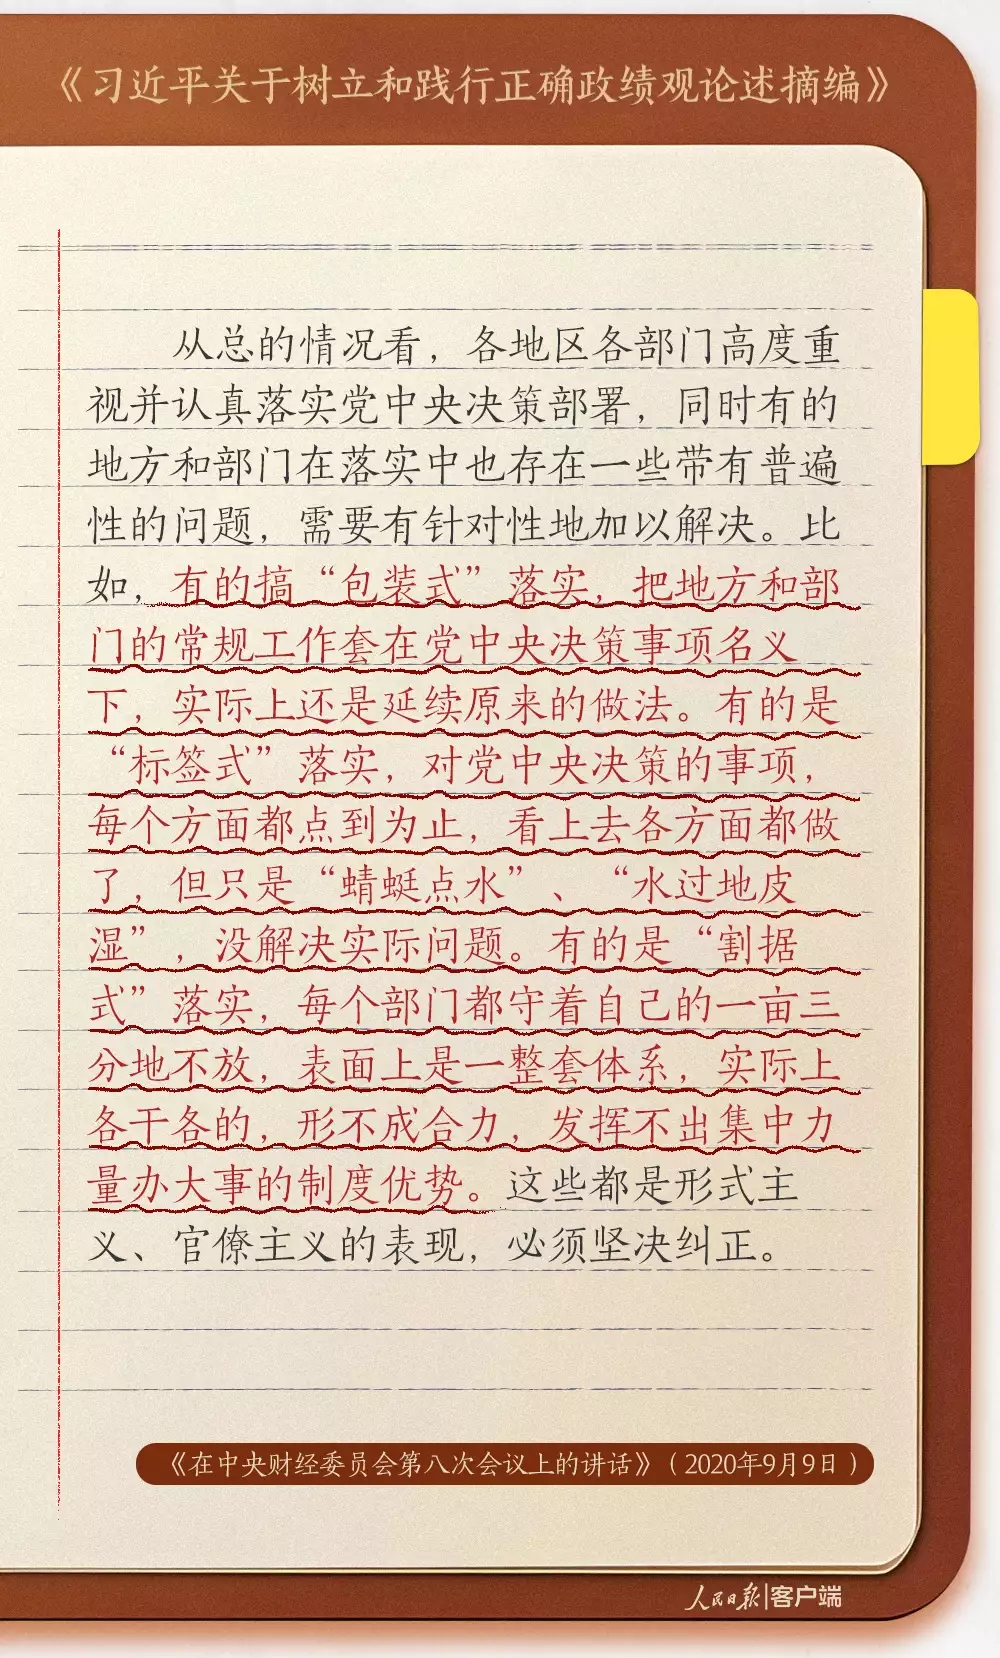 《习近平关于树立和践行正确政绩观论述摘编》
从总的情况看，各地区各部门高度重
视并认真落实党中央决策部署，同时有的
地方和部门在落实中也存在一些带有普遍
性的问题，需要有针对性地加以解决。比
如，有的搞“包装式”落实，把地方和部
门的常规工作套在党中央决策事项名义
下，实际上还是延续原来的做法。有的是
“标签式”落实，对党中央决策的事项，
每个方面都点到为止，看上去各方面都做
了，但只是“蜻蜓点水”、“水过地皮
湿”，没解决实际问题。有的是“割据
式”落实，每个部门都守着自己的一亩三
分地不放，表面上是一整套体系，实际上
各干各的，形不成合力，发挥不出集中力
量办大事的制度优势。这些都是形式主
义、官僚主义的表现，必须坚决纠正。
《在中央财经委员会第八次会议上的讲话》（2020年9月9日）
人民日报|客户端